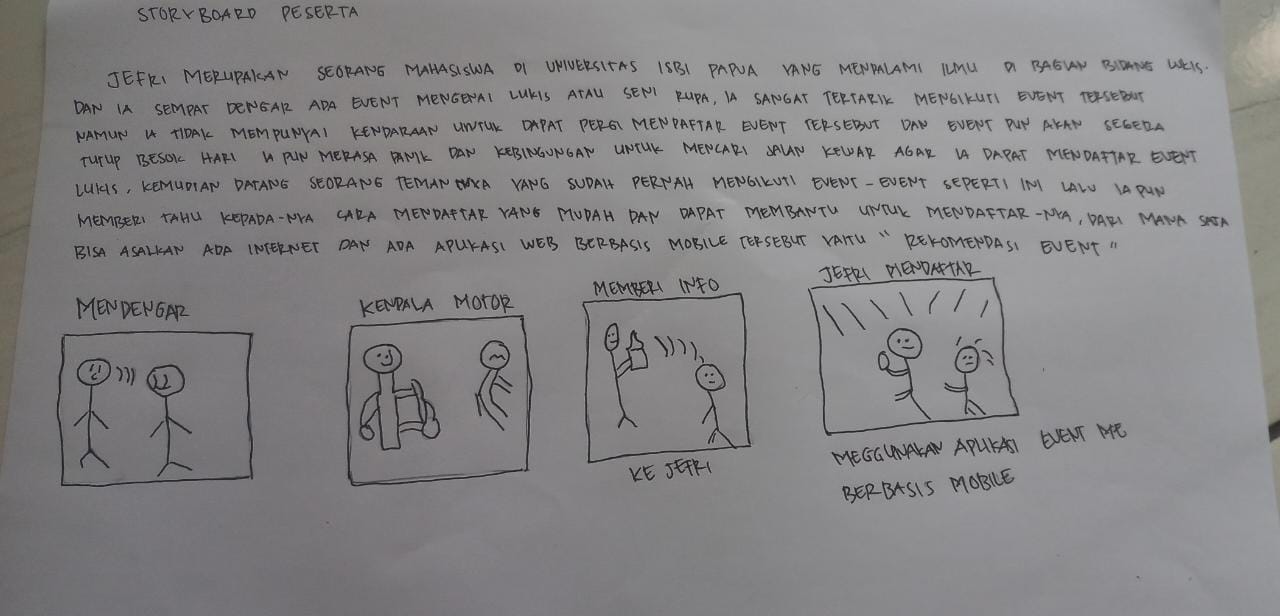 STORYBOARD PESERTA
JEFRI MERUPAKAN SEORANG MAHASISWA DI UNIVERSITAS ISBI PAPUA YANG MENDALAMI ILMU DI BAGIAN BIDANG LUKIS.
DAN IA SEMPAT DENGAR ADA EVENT MENGENAI LUKIS ATAU SENI RUPA, IA SANGAT TERTARIK MENGIKUTI EVENT TERSEBUT
NAMUN IA TIDAK MEMPUNYAI KENDARAAN UNTUK DAPAT PERGI MENDAFTAR EVENT TERSEBUT DAN EVENT PUN AKAN SEGERA
TUTUP BESOK HARI IA PUN MERASA PANIK DAN KEBINGUNGAN UNTUK MENCARI JALAN KELUAR AGAR IA DAPAT MENDAFTAR EVENT
LUKIS, KEMUDIAN DATANG SEORANG TEMAN NYA YANG SUDAH PERNAH MENGIKUTI EVENT-EVENT SEPERTI INI LALU IA PUN
MEMBERI TAHU KEPADA-NYA CARA MENDAFTAR YANG MUDAH DAN DAPAT MEMBANTU UNTUK MENDAFTAR-NYA, DARI MANA SAJA
BISA ASALKAN ADA INTERNET DAN ADA APLIKASI WEB BERBASIS MOBILE TERSEBUT YAITU " REKOMENDASI EVENT "
MENDENGAR
KENDALA MOTOR
MEMBERI INFO
KE JEFRI
JEFRI MENDAFTAR
MEGGUNAKAN APLIKASI EVENT ME
BERBASIS MOBILE